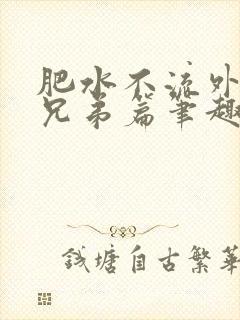 肥水不流外
兄弟篇笔趣
钱塘自古繁华